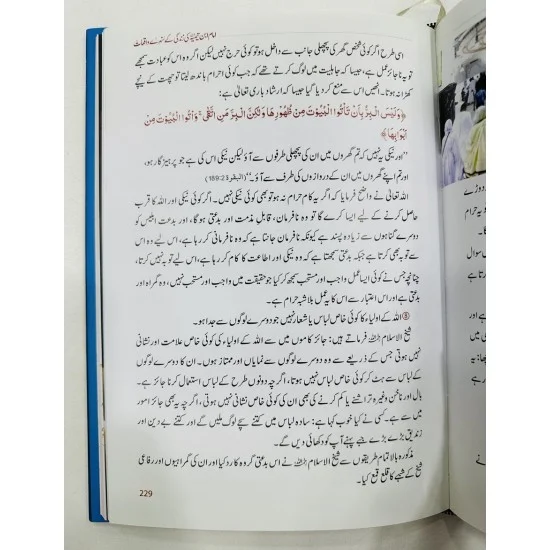 امام ابن تیمیہ کی زندگی کے سنہرے واقعات
اسی طرح اگر کوئی شخص گھر کی پچھلی جانب سے داخل ہو تو کوئی حرج نہیں لیکن اگر وہ اس کو عبادت سمجھے
تو یہ ناجائز عمل ہے، جیسا کہ جاہلیت میں لوگ کرتے تھے کہ جب کوئی احرام باندھ لیتا تو چھت کے نیچے
کھڑا نہ ہوتا۔ انھیں اس سے منع کر دیا گیا جیسا کہ ارشاد باری تعالیٰ ہے:
﴿وَلَيْسَ الْبِرُّ بِأَنْ تَأْتُوا الْبُيُوتَ مِنْ ظُهُورِهَا وَلَٰكِنَّ الْبِرَّ مَنِ اتَّقَىٰ ۗ وَأْتُوا الْبُيُوتَ مِنْ
أَبْوَابِهَا﴾
”اور نیکی یہ نہیں کہ تم گھروں میں ان کی پچھلی طرفوں سے آؤ لیکن نیکی اس کی ہے جو پرہیزگار ہو،
اور تم اپنے گھروں میں ان کے دروازوں کی طرف سے آؤ۔“ (البقرة 189:2)
اللہ تعالیٰ نے واضح فرمایا کہ اگر یہ کام حرام نہ ہو تو بھی کوئی نیکی نہیں۔ اگر کوئی نیکی اور اللہ کا قرب
حاصل کرنے کے لیے ایسا کرے گا تو وہ نافرمان، قابل مذمت اور بدعتی ہوگا، اور بدعت ابلیس کو
دوسرے گناہوں سے زیادہ پسند ہے کیونکہ نافرمان جانتا ہے کہ وہ نافرمانی کر رہا ہے، اس لیے وہ اس
سے توبہ بھی کرتا ہے جبکہ بدعتی سمجھتا ہے کہ وہ نیکی اور اطاعت کا کام کر رہا ہے، اس لیے توبہ نہیں کرتا،
چنانچہ جس نے کوئی ایسا عمل واجب اور مستحب سمجھ کر کیا جو حقیقت میں واجب اور مستحب نہیں، وہ گمراہ اور
بدعتی ہے اور اس اعتبار سے اس کا یہ عمل بلاشبہ حرام ہے۔
اللہ کے اولیاء کا کوئی خاص لباس یا شعار نہیں جو دوسرے لوگوں سے جدا ہو۔
شیخ الاسلام فرماتے ہیں: جائز کاموں میں سے اللہ کے اولیاء کی کوئی خاص علامت اور نشانی
نہیں ہوتی جس کے ذریعے سے وہ دوسرے لوگوں سے نمایاں اور ممتاز ہوں۔ ان کا دوسرے لوگوں
کے لباس سے ہٹ کر کوئی خاص لباس نہیں ہوتا، اگرچہ دونوں طرح کے لباس استعمال کرنا جائز ہے۔
بال اور ناخن وغیرہ تراشنے یا کم کرنے کی بھی ان کی کوئی خاص نشانی نہیں ہوتی، اگرچہ یہ بھی جائز امور
میں سے ہے۔ کسی نے کیا خوب کہا ہے: سادہ لباس میں کتنے سچے لوگ ملیں گے اور کتنے بے دین اور
زندیق بڑے بڑے جبے پہنے آپ کو دکھائی دیں گے۔
مذکورہ بالا تمام طریقوں سے شیخ الاسلام نے اس بدعتی گروہ کا رد کیا اور ان کی گمراہیوں اور رفاعی
شیخ کے شبہے کا قلع قمع کیا۔
229